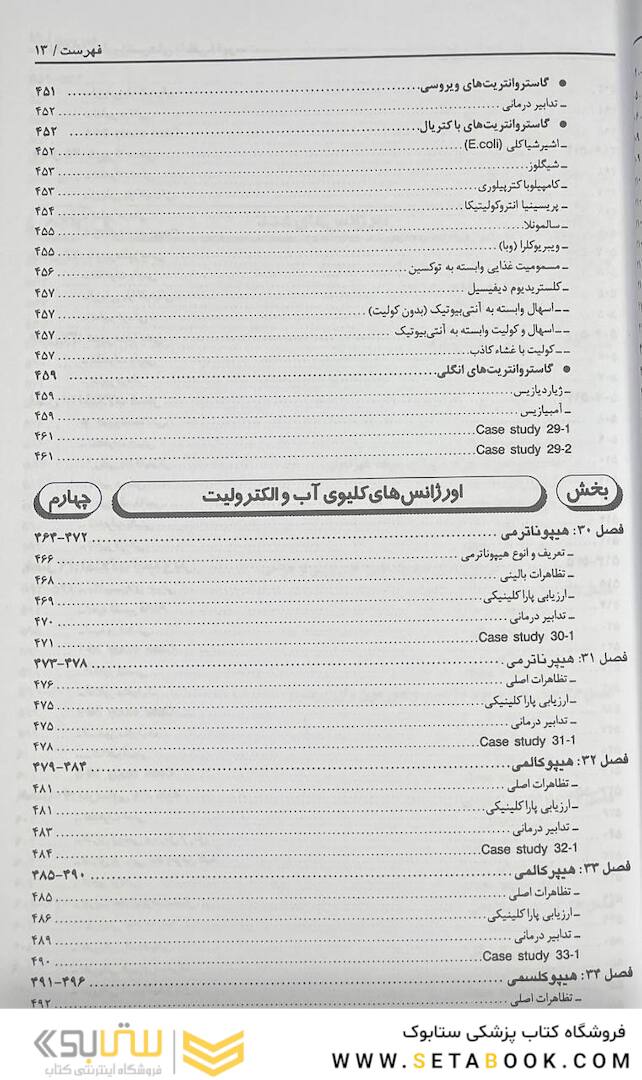 فهرست / ۱۳
● گاستروانتریت‌های ویروسی ۴۵۱
ـ تدابیر درمانی ۴۵۲
● گاستروانتریت‌های باکتریال ۴۵۲
ـ اشیرشیاکلی (E.coli) ۴۵۲
ـ شیگلوز ۴۵۳
ـ کامپیلوباکترپیلوری ۴۵۳
ـ یرسینیا انتروکولیتیکا ۴۵۴
ـ سالمونلا ۴۵۵
ـ ویبریوکلرا (وبا) ۴۵۵
ـ مسمومیت غذایی وابسته به توکسین ۴۵۶
ـ کلستریدیوم دیفیسیل ۴۵۷
ــ اسهال وابسته به آنتی‌بیوتیک (بدون کولیت) ۴۵۷
ــ اسهال و کولیت وابسته به آنتی‌بیوتیک ۴۵۷
ــ کولیت با غشاء کاذب ۴۵۷
● گاستروانتریت‌های انگلی ۴۵۹
ـ ژیاردیازیس ۴۵۹
ـ آمیبیازیس ۴۵۹
Case study 29-1 ۴۶۱
Case study 29-2 ۴۶۱
بخش اورژانس‌های کلیوی آب و الکترولیت چهارم
فصل ۳۰: هیپوناترمی ۴۶۴-۴۷۲
ـ تعریف و انوع هیپوناترمی ۴۶۶
ـ تظاهرات بالینی ۴۶۸
ـ ارزیابی پاراکلینیکی ۴۶۹
ـ تدابیر درمانی ۴۷۰
Case study 30-1 ۴۷۱
فصل ۳۱: هیپرناترمی ۴۷۳-۴۷۸
ـ تظاهرات اصلی ۴۷۶
ـ ارزیابی پاراکلینیکی ۴۷۵
ـ تدابیر درمانی ۴۷۵
Case study 31-1 ۴۷۸
فصل ۳۲: هیپوکالمی ۴۷۹-۴۸۴
ـ تظاهرات اصلی ۴۸۱
ـ ارزیابی پاراکلینیکی ۴۸۱
ـ تدابیر درمانی ۴۸۳
Case study 32-1 ۴۸۴
فصل ۳۳: هیپرکالمی ۴۸۵-۴۹۰
ـ تظاهرات اصلی ۴۸۵
ـ ارزیابی پاراکلینیکی ۴۸۶
ـ تدابیر درمانی ۴۸۹
Case study 33-1 ۴۹۰
فصل ۳۴: هیپوکلسمی ۴۹۱-۴۹۶
ـ تظاهرات اصلی ۴۹۲
فروشگاه کتاب پزشکی ستابوک
WWW.SETABOOK.COM
ستابوک
فروشگاه اینترنتی کتاب